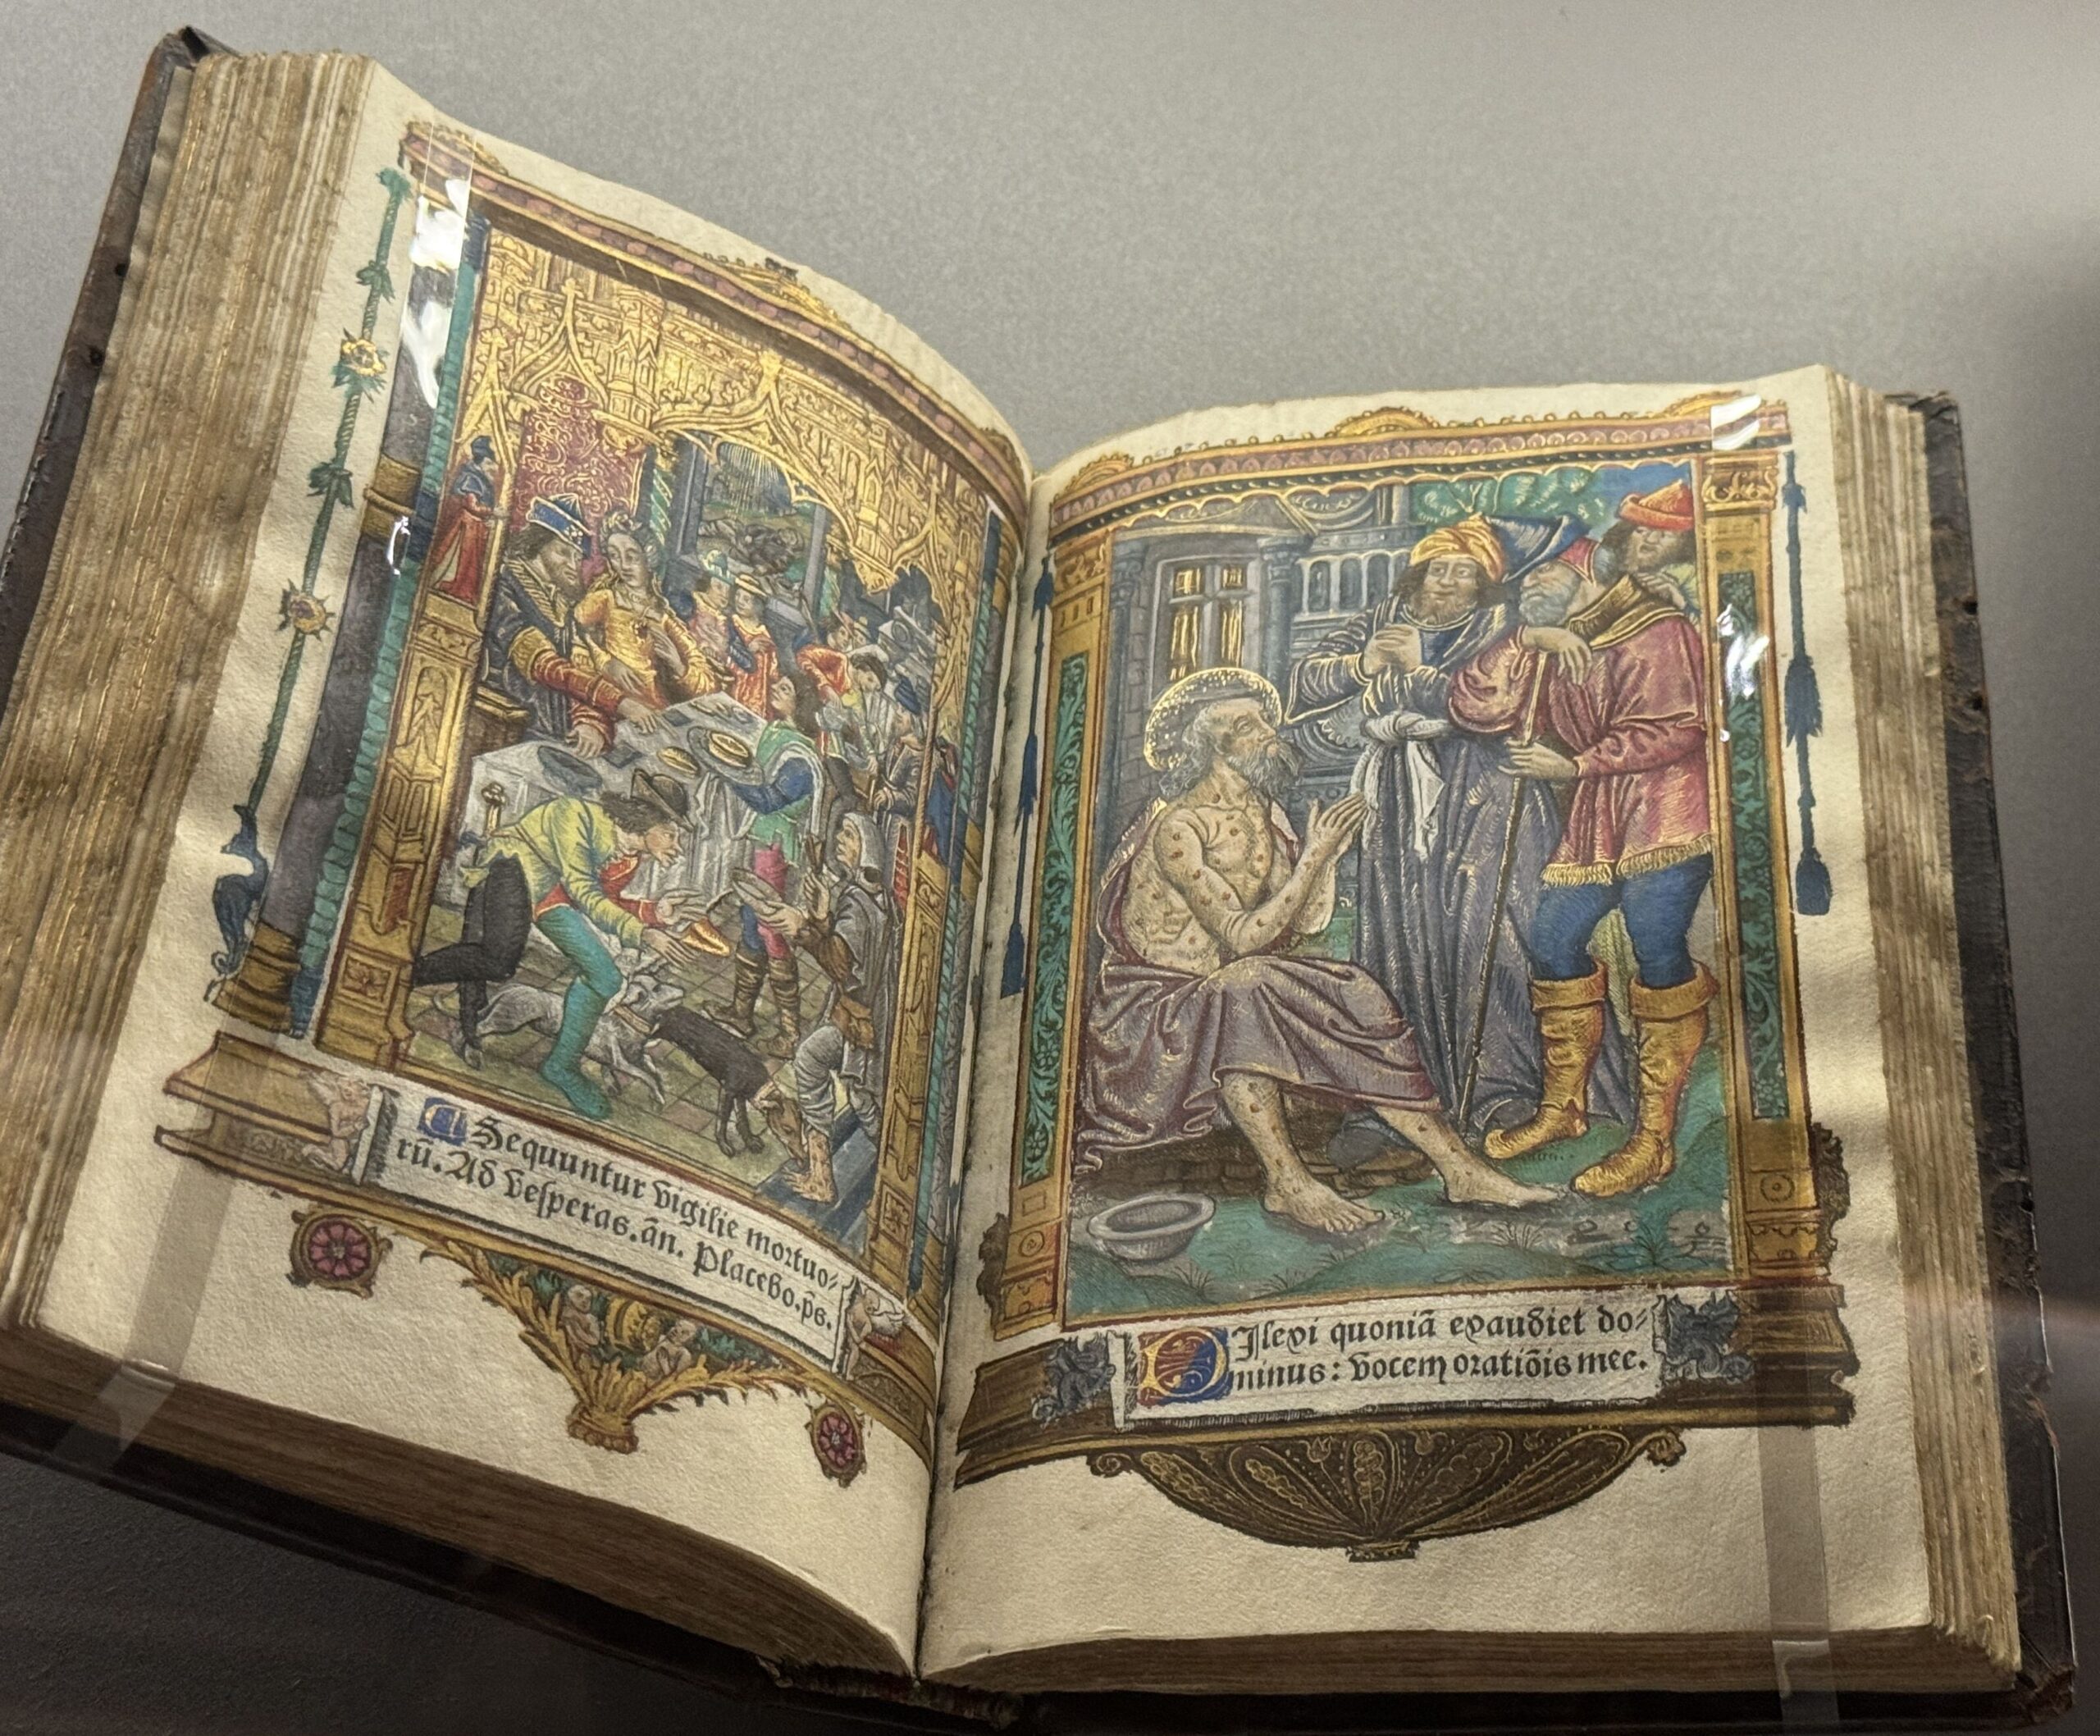 Sequuntur vigilie mortuo⸗
rũ. Ad vesperas. ãn. Placebo. p̃s.
DIlexi quoniã exaudiet do⸗
minus: vocem oratiõis mee.